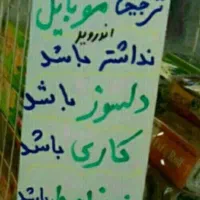 ترجیحا موبایل
اندروید
نداشته باشد
دلسوز باشد
کاری باشد
باشد